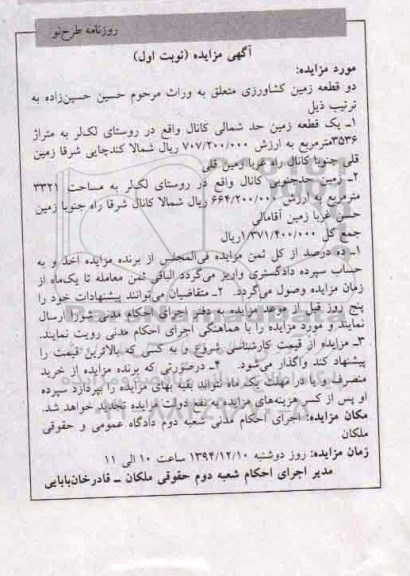 روزنامه طرح‌نو
آگهی مزایده (نوبت اول)
مورد مزایده:
دو قطعه زمین کشاورزی متعلق به وراث مرحوم حسین حسین‌زاده به
ترتیب ذیل
۱ـ یک قطعه زمین حد شمالی کانال واقع در روستای لک‌لر به متراژ
۳۵۳۶مترمربع به ارزش ۷۰۷/۲۰۰/۰۰۰ ریال شمالا کندچایی شرقا زمین
قلی جنوبا کانال راه غربا زمین قلی
۲ـ زمین حدجنوبی کانال واقع در روستای لک‌لر به مساحت ۳۳۲۱
مترمربع به ارزش ۶۶۴/۲۰۰/۰۰۰ ریال شمالا کانال شرقا راه جنوبا زمین
حسن غربا زمین آقامالی
جمع کل ۱/۳۷۱/۴۰۰/۰۰۰ریال
۱ـ ده درصد از کل ثمن مزایده فی‌المجلس از برنده مزایده اخذ و به
حساب سپرده دادگستری واریز می‌گردد الباقی ثمن معامله تا یک‌ماه از
زمان مزایده وصول می‌گردد. ۲ـ متقاضیان می‌توانند پیشنهادات خود را
پنج روز قبل از موعد مزایده به دفتر اجرای احکام مدنی شورا ارسال
نمایند و مورد مزایده را با هماهنگی اجرای احکام مدنی رویت نمایند.
۳ـ مزایده از قیمت کارشناسی شروع و به کسی که بالاترین قیمت را
پیشنهاد کند واگذار می‌شود. ۴ـ درصورتی که برنده مزایده از خرید
منصرف و یا در مهلت یک ماه نتواند بقیه بهای مزایده را بپردازد سپرده
او پس از کسر هزینه‌های مزایده به نفع دولت مزایده تجدید خواهد شد.
مکان مزایده: اجرای احکام مدنی شعبه دوم دادگاه عمومی و حقوقی
ملکان
زمان مزایده: روز دوشنبه ۱۳۹۴/۱۲/۱۰ ساعت ۱۰ الی ۱۱
مدیر اجرای احکام شعبه دوم حقوقی ملکان ـ قادرخان‌بابایی